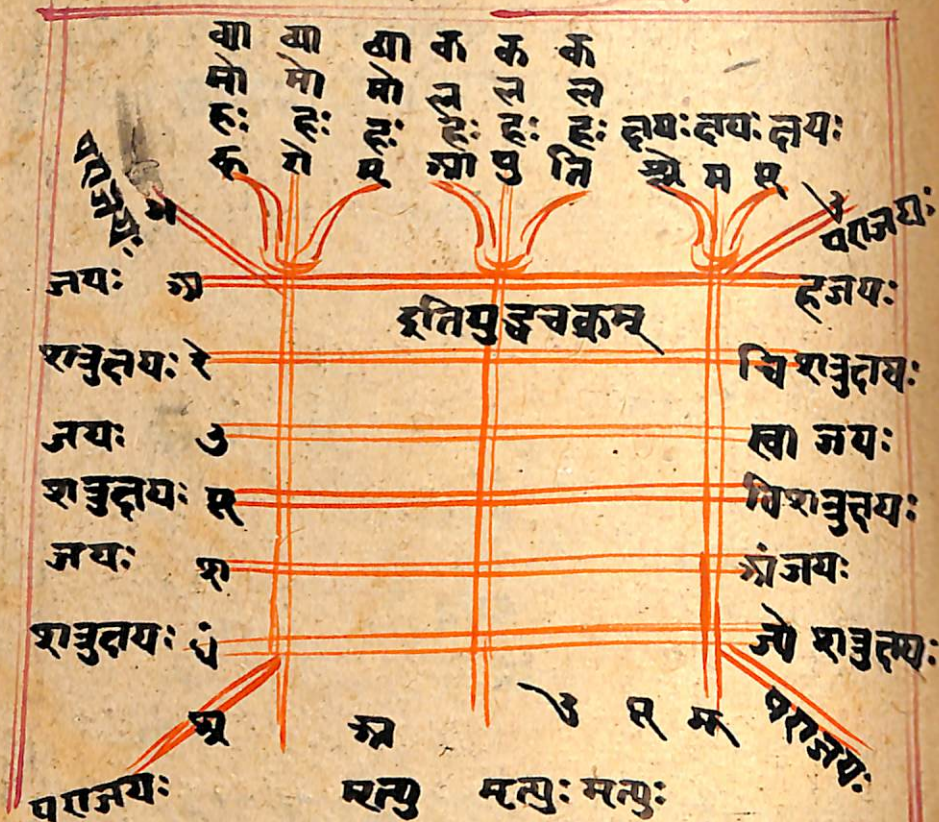 व्या व्या व्या क क क
मो मो मो ल ल ल
हः हः हः हः हः हः क्षयः क्षयः क्षयः
कृ रो मृ आ पु ति श्ले म मृ
पराजयः भ उ पराजयः
जयः अ ह जयः
इति युद्धचक्रम्
शत्रुक्षयः रे चि शत्रुक्षयः
जयः उ स्वा जयः
शत्रुक्षयः मृ वि शत्रुक्षयः
जयः श अं जयः
शत्रुक्षयः ध ज्ये शत्रुक्षयः
श्र अ उ मृ म् पराजयः
पराजयः मृत्यु मृत्युः मृत्युः